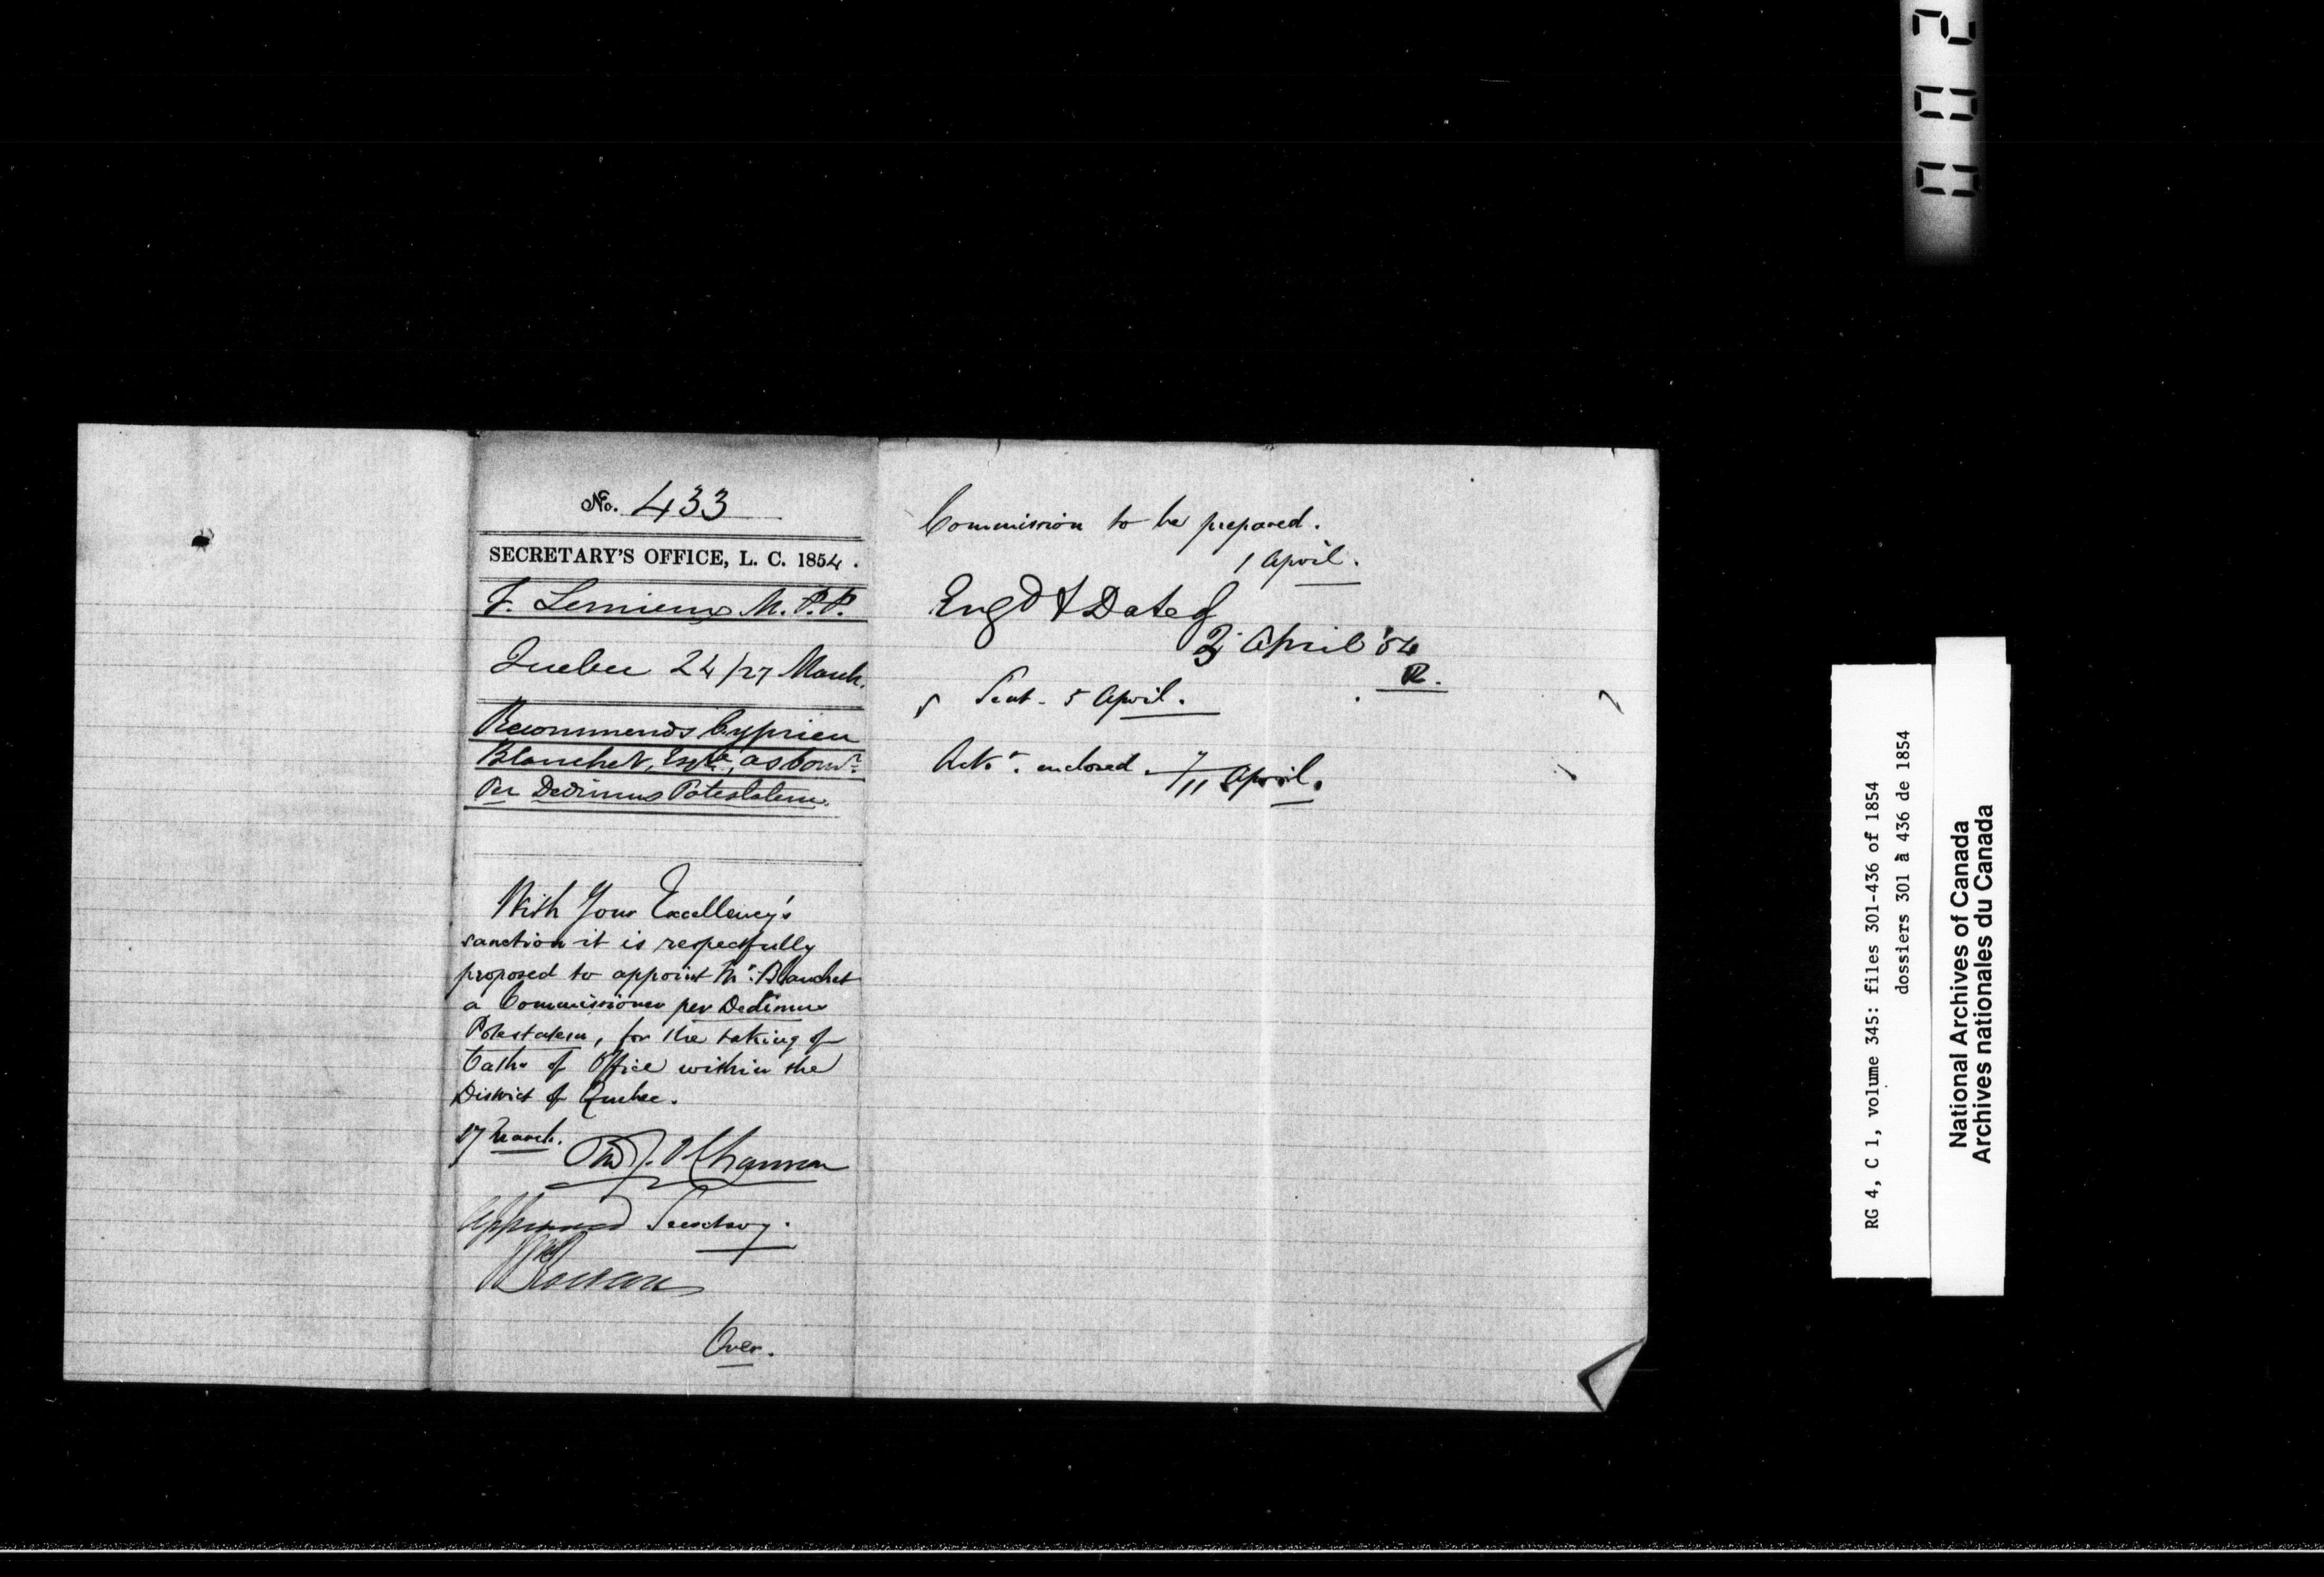 No. 433
SECRETARY'S OFFICE, L. C. 1854.
F. Lemieux M.P.P.
Quebec 24/27 March.
Recommends Cyprien
Blanchet, Esqre, as Comr.
Per Dedimus Potestatem.
With Your Excellency's
sanction it is respectfully
proposed to appoint Mr. Blanchet
a Commissioner per Dedimus
Potestatem, for the taking of
Oaths of Office within the
District of Quebec.
27 March.
P. J. O. Chauveau
Approved Secretary.
Rowan
Over.
Commission to be prepared.
1 April.
Engd & Dated
3 April '54
R.
Sent - 5 April.
Ackt. enclosed 7/11 April.
002
RG 4, C 1, volume 345: files 301-436 of 1854
dossiers 301 à 436 de 1854
National Archives of Canada
Archives nationales du Canada